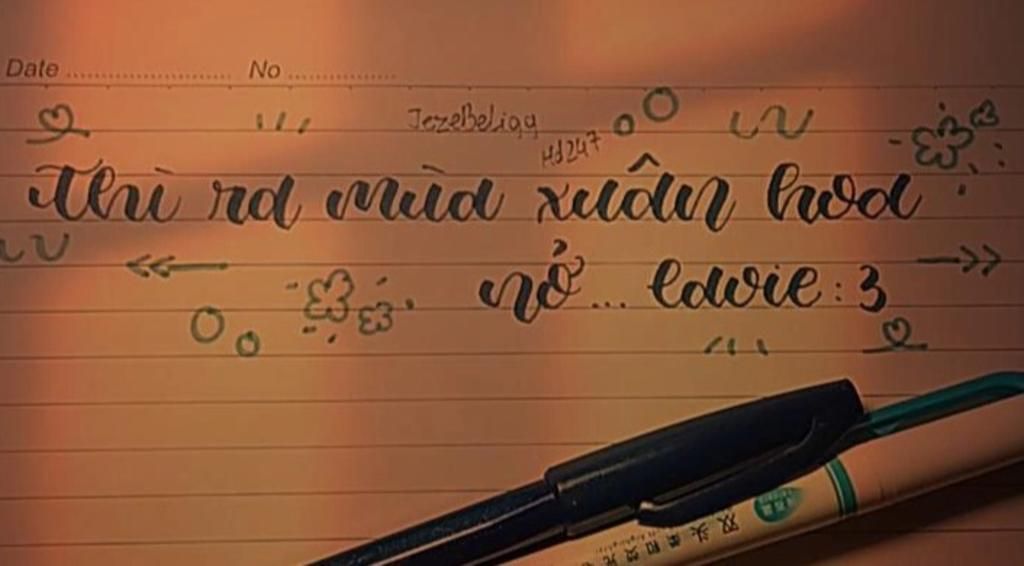 Date ........................ No ................
JezeBeLiqq
Hd247
Thì ra mùa xuân hoa
nở... edwie :3
双头